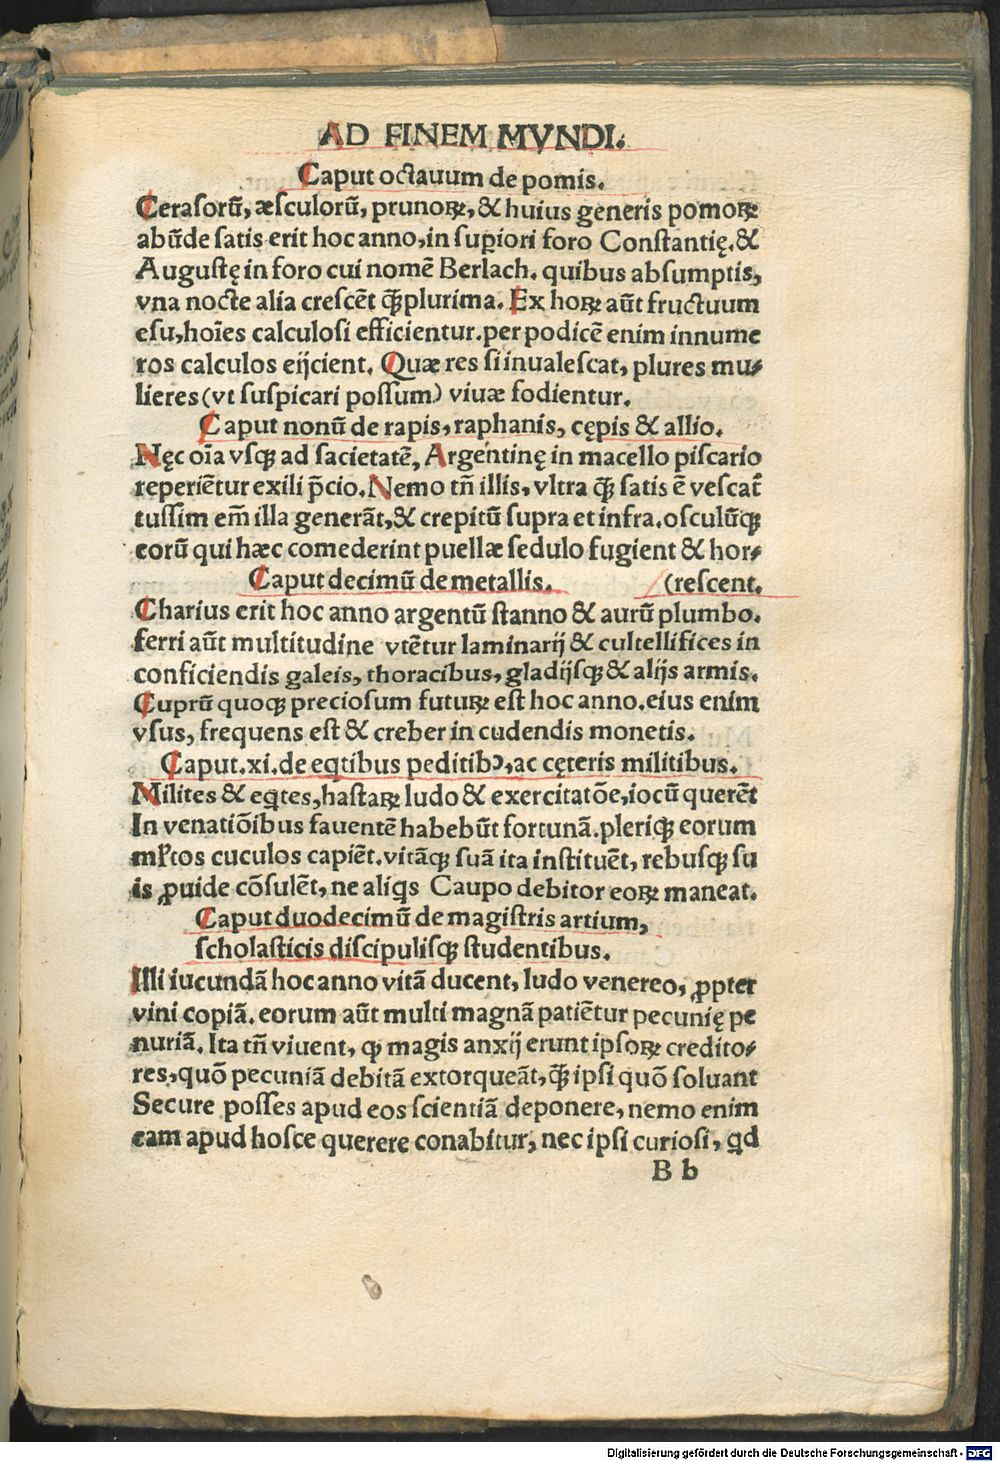 AD FINEM MVNDI.
Caput octauum de pomis.
Ceraſorū, æſculorū, prunoꝝ, & huius generis pomoꝝ
abūde ſatis erit hoc anno, in ſuꝑiori foro Conſtantię. &
Auguſtę in foro cui nomē Berlach. quibus abſumptis,
vna nocte alia creſcēt q̄ꝫplurima. Ex hoꝝ aūt fructuum
eſu, hoīes calculoſi efficientur. per podicē enim innume
ros calculos eijcient. Quæ res ſi inualeſcat, plures mu⸗
lieres (vt ſuſpicari poſſum) viuæ fodientur.
Caput nonū de rapis, raphanis, cępis & allio.
Nęc oīa vſqꝫ ad ſacietatē, Argentinę in macello piſcario
reperiētur exili p̄cio. Nemo tn̄ illis, vltra q̄ꝫ ſatis ē veſcat᷑
tuſſim em̄ illa generāt, & crepitū ſupra et infra. oſculūqꝫ
eorū qui hæc comederint puellæ ſedulo fugient & hor⸗
Caput decimū de metallis. (reſcent.
Charius erit hoc anno argentū ſtanno & aurū plumbo.
ferri aūt multitudine vtētur laminarij & cultellifices in
conficiendis galeis, thoracibus, gladijſqꝫ & alijs armis.
Cuprū quoqꝫ precioſum futuꝝ eſt hoc anno. eius enim
vſus, frequens eſt & creber in cudendis monetis.
Caput. xi. de eq̇tibus peditibꝰ, ac cęteris militibus.
Milites & eq̇tes, haſtaꝝ ludo & exercitatōe, iocū querēt
In venatiōibus fauentē habebūt fortunā. pleriqꝫ eorum
mł̓tos cuculos capiēt. vitāqꝫ ſuā ita inſtituēt, rebuſqꝫ ſu
is ꝓuide cōſulēt, ne aliq̇s Caupo debitor eoꝝ maneat.
Caput duodecimū de magiſtris artium,
ſcholaſticis diſcipuliſqꝫ ſtudentibus.
Illi iucundā hoc anno vitā ducent, ludo venereo, ꝓpter
vini copiā. eorum aūt multi magnā patiētur pecunię pe
nuriā. Ita tn̄ viuent, ꝙ magis anxij erunt ipſoꝝ credito⸗
res, quō pecuniā debitā extorqueāt, q̄ꝫ ipſi quō ſoluant
Secure poſſes apud eos ſcientiā deponere, nemo enim
eam apud hoſce querere conabitur, nec ipſi curioſi, qd
B b
Digitalisierung gefördert durch die Deutsche Forschungsgemeinschaft - DFG